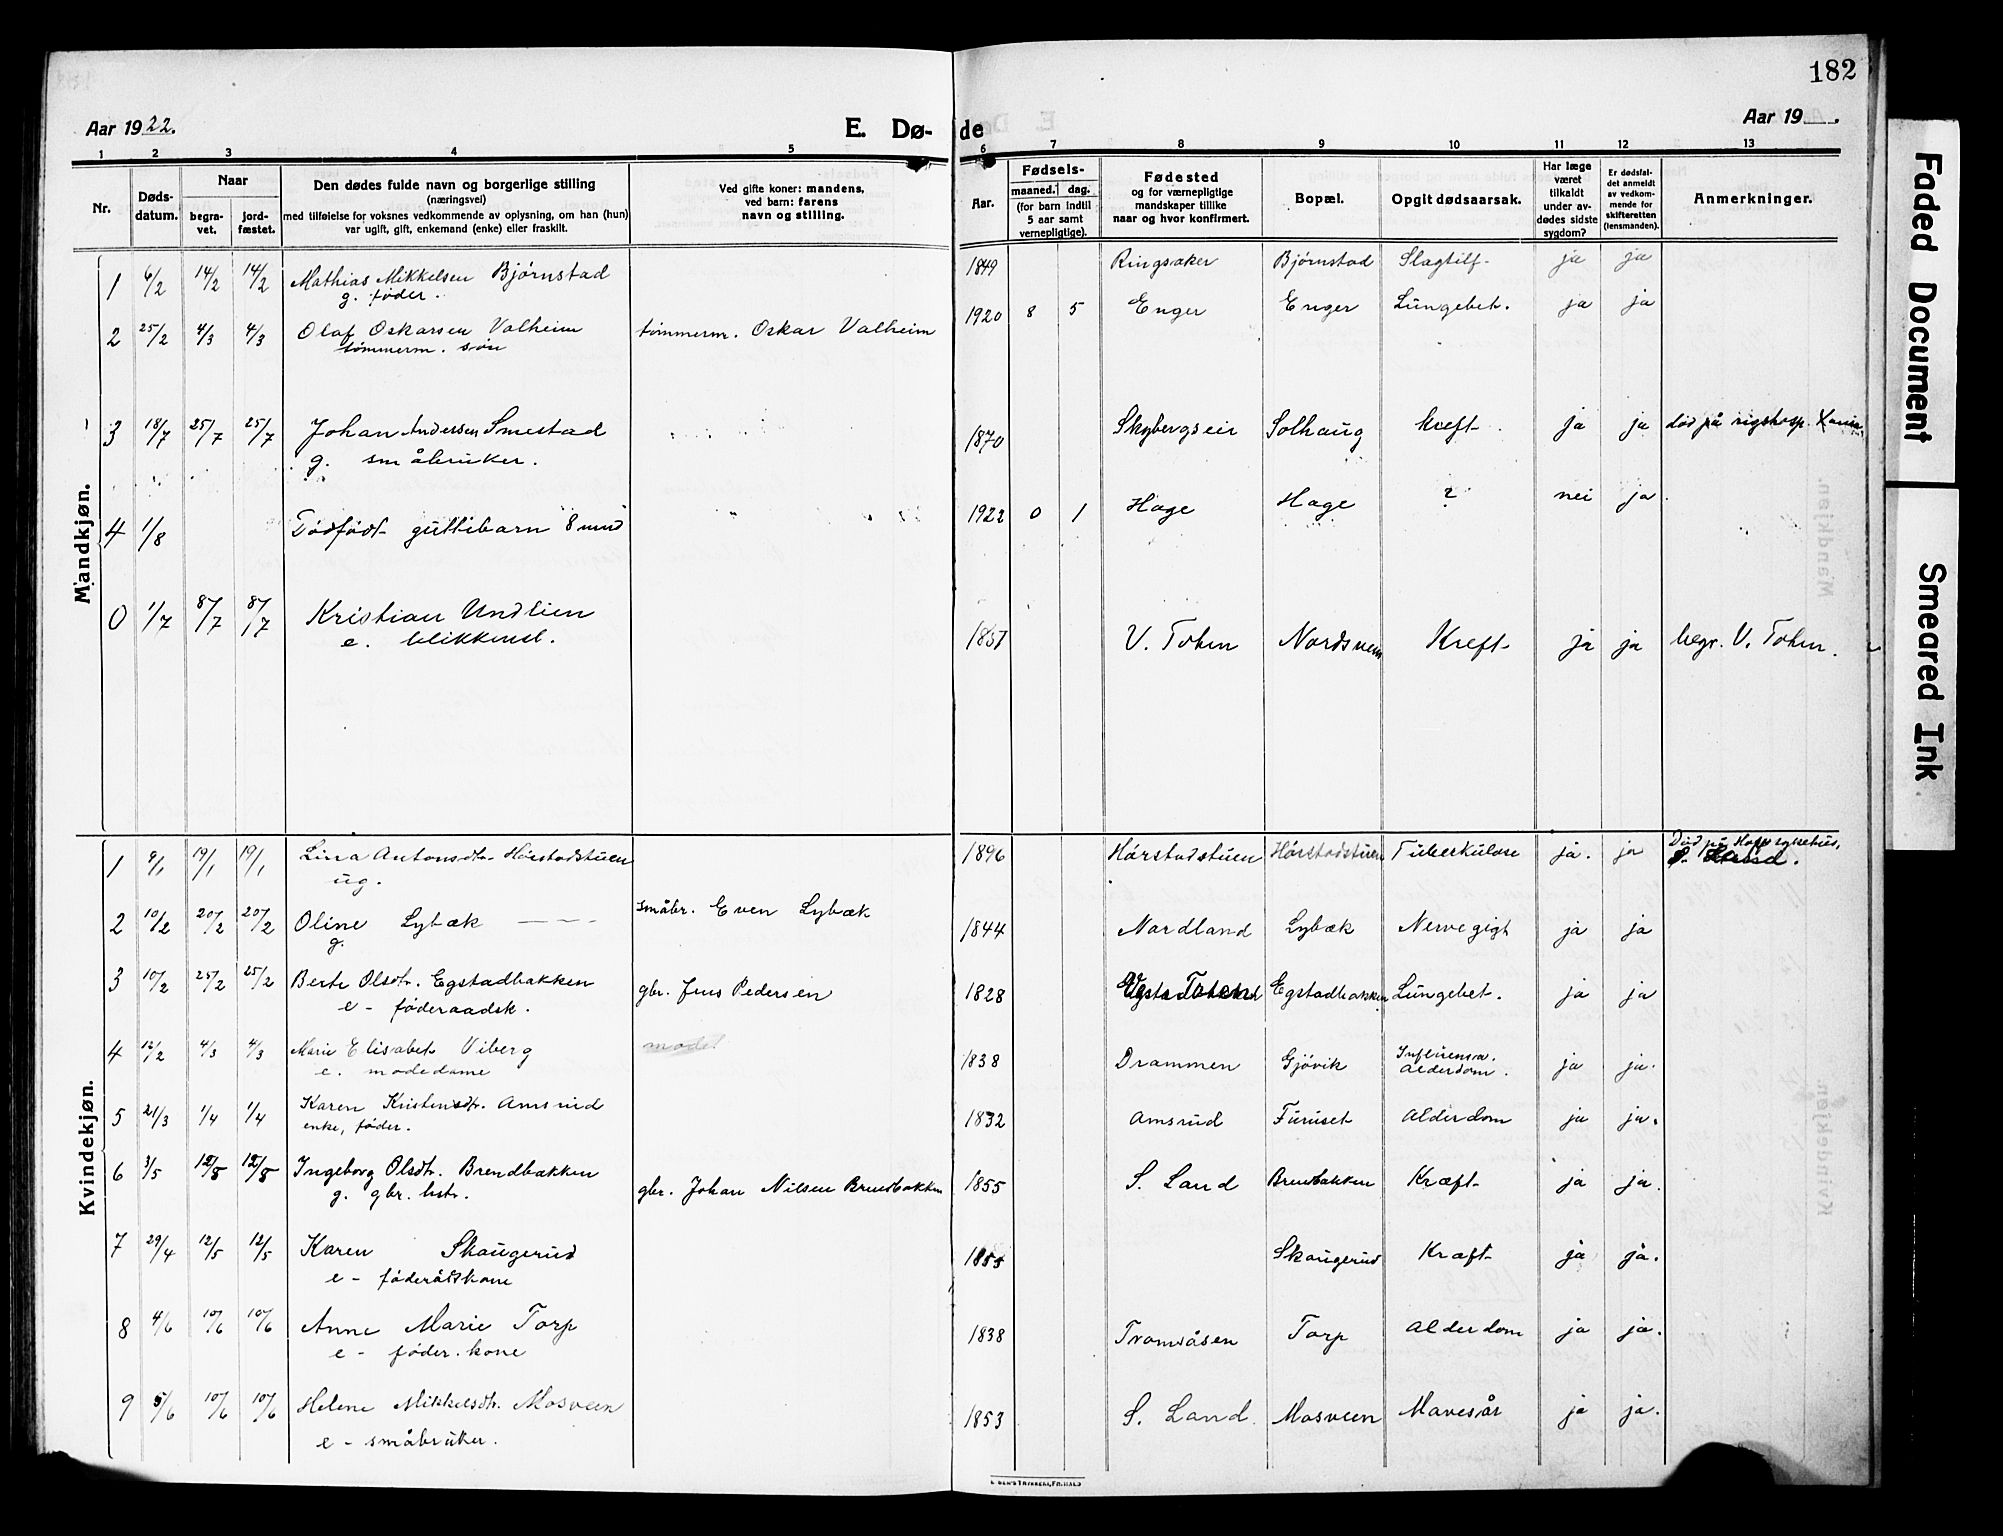 182
Aar 1922.
E. Dø-
de
Aar 19
1 2 3 4 5 6 7 8 9 10 11 12 13
Nr.
Døds-
datum.
Naar
begra-
vet.
jord-
fæstet.
Den dødes fulde navn og borgerlige stilling
(næringsvei)
med tilføielse for voksnes vedkommende av oplysning, om han (hun)
var ugift, gift, enkemand (enke) eller fraskilt.
Ved gifte koner: mandens,
ved barn: farens
navn og stilling.
Aar.
Fødsels-
maaned. dag.
(for barn indtil
5 aar samt
vernepligtige).
Fødested
og for værnepligtige
mandskaper tillike
naar og hvor konfirmert.
Bopæl.
Opgit dødsaarsak.
Har læge
været
tilkaldt
under av-
dødes sidste
sygdom?
Er dødsfal-
det anmeldt
av vedkom-
mende for
skifteretten
(lensmanden).
Anmerkninger.
Mandkjøn.
1 6/2 14/2 14/2 Mathias Mikkelsen Bjørnstad 1849 Ringsaker Bjørnstad Slagtilf. ja ja
g. føder.
2 25/2 4/3 4/3 Olaf Oskarsen Valheim tømmerm. Oskar Valheim 1920 8 5 Enger Enger Lungebet. ja ja
tømmerm. søn
3 18/7 25/7 25/7 Johan Andersen Smestad 1870 Skybergseie Solhaug Kreft ja ja død på rigshosp. Xania
g. småbruker.
4 1/8 Dødfødt guttebarn 8 mnd 1922 0 1 Hage Hage ? nei ja
0 1/7 8/7 8/7 Kristian Undlien 1851 V. Toten Nordsveen Kreft ja ja begr. V. Toten.
e. blikkensl.
Kvindekjøn.
1 9/1 19/1 19/1 Lina Antonsdtr. Hørstadstuen 1896 Hørstadstuen Hørstadstuen Tuberkulose ja. ja Død på Kopp sykehus,
ug.
2 10/2 20/2 20/2 Oline Lybæk småbr. Even Lybæk 1844 Nordland Lybæk Nervegigt ja ja
g.
3 10/2 25/2 25/2 Berte Olsdtr. Egstadbakken gbr. Jens Pedersen 1828 V. Toten Egstadbakken Lungebet. ja ja
e - føderaadsk.
4 12/2 4/3 4/3 Marie Elisabet Viberg 1838 Drammen Gjøvik Influensa. Alderdom. ja ja.
e. modedame
5 21/3 1/4 1/4 Karen Kristensdtr. Amsrud 1832 Amsrud Furuset Alderdom ja ja.
enke, føder.
6 3/5 12/5 12/5 Ingeborg Olsdtr. Brendbakken gbr. Johan Nilsen Brendbakken 1855 S. Land Brendbakken Kræft ja ja.
g. gbr. hstr.
7 29/4 12/5 12/5 Karen Skaugerud 1855 Skaugerud Kræft ja ja.
e - føderådskone
8 4/6 10/6 10/6 Anne Marie Torp 1838 Tromsåsen Torp Alderdom ja ja.
e - føder. kone
9 5/6 10/6 10/6 Helene Mikkelsdtr. Mosveen 1853 S. Land Mosveen Mavesår ja ja.
e - småbruker.
Faded Document
Smeared Ink